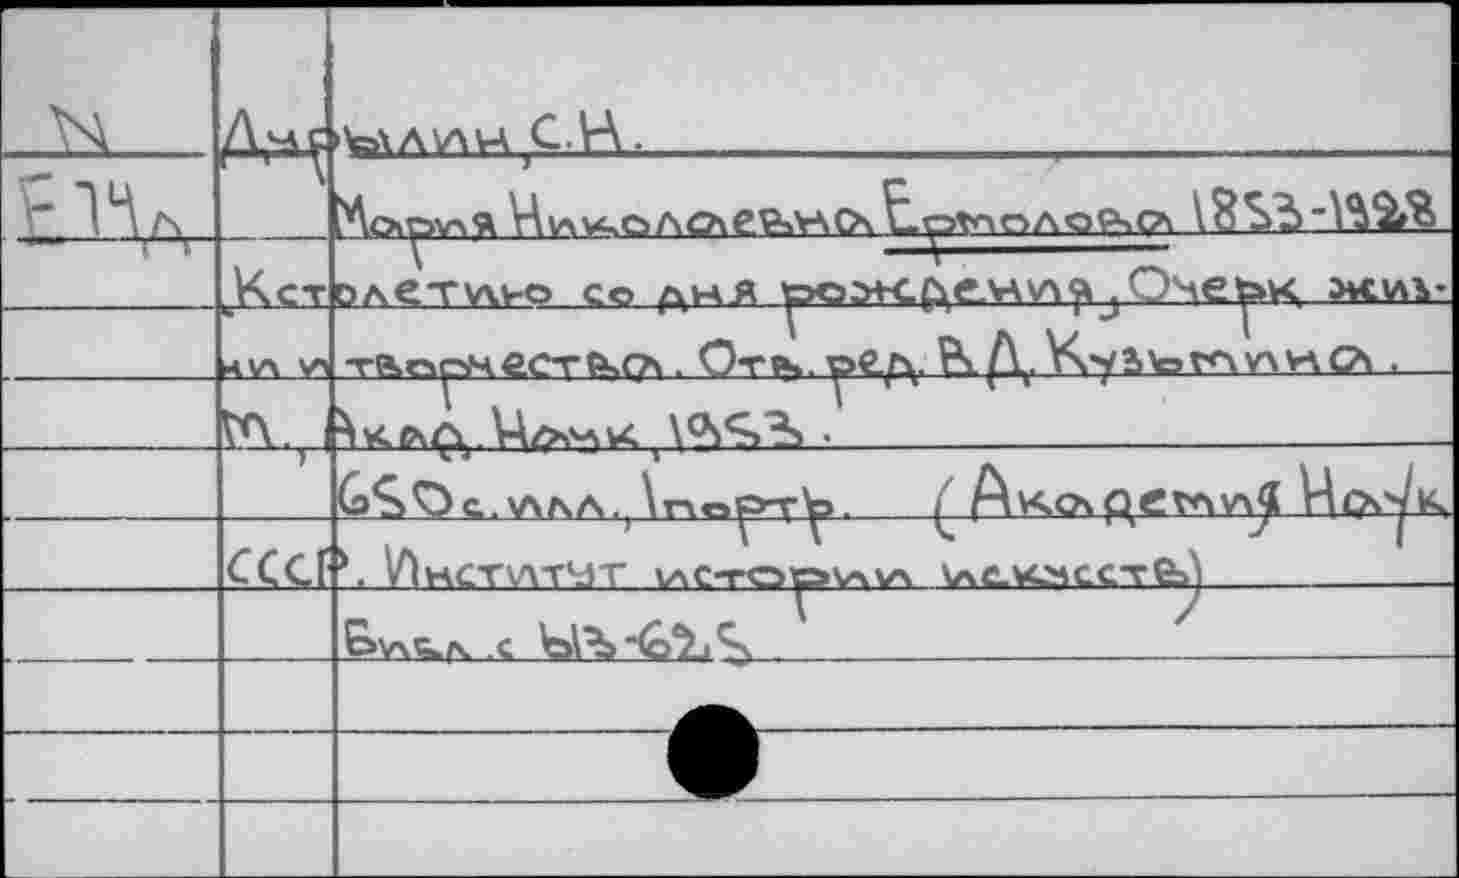 N Дурылин, С.Н.
Е74д Мария Николаевна Ермолова 1853-1928
К столетию со дня рождения, Очерк жиз-
ни и творчества. Отв. ред. В.Д. Кузьмина.
М., Акад. Наук, 1953.
650 с. илл., 1 портр. (Академия Наук
СССР. Институт истории искусств)
Библ. с 613-625